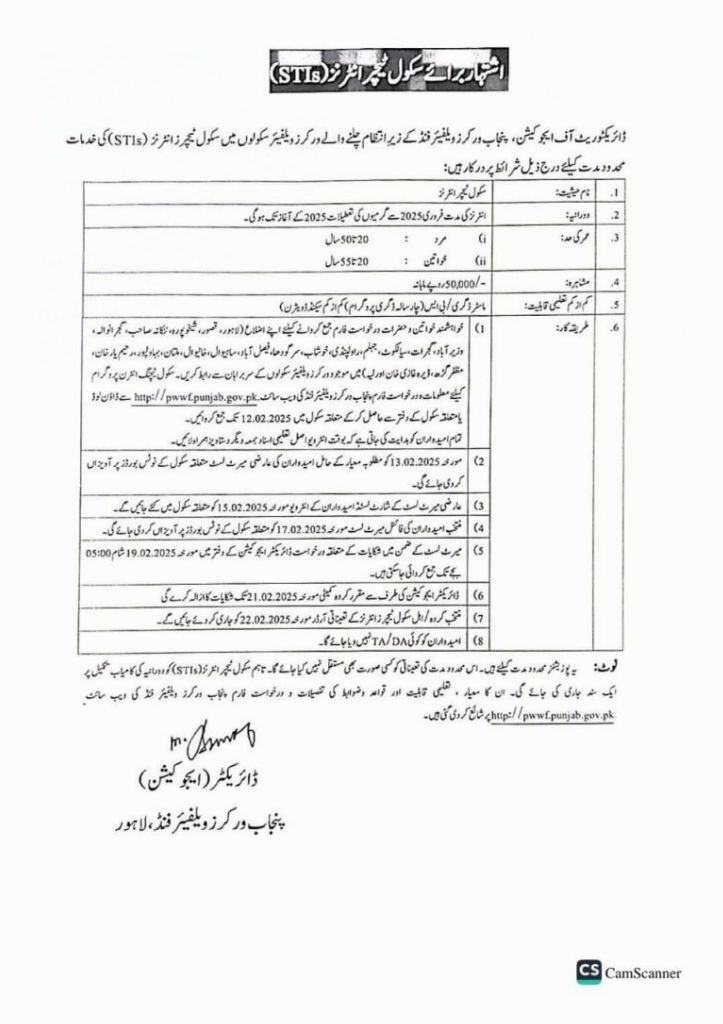 اشتہار برائے سکول ٹیچر انٹرنز (STIs)
ڈائریکٹوریٹ آف ایجوکیشن، پنجاب ورکرز ویلفیئر فنڈ کے زیر انتظام چلنے والے ورکرز ویلفیئر سکولوں میں سکول ٹیچرز انٹرنز (STIs) کی خدمات
محدود مدت کیلئے درج ذیل شرائط پر درکار ہیں:
1. نام حیثیت: سکول ٹیچر انٹرنز
2. دورانیہ: انٹرنز کی مدت فروری 2025 سے گرمیوں کی تعطیلات 2025 کے آغاز تک ہوگی۔
3. عمر کی حد: i) مرد : 20 تا 50 سال
ii) خواتین : 20 تا 55 سال
4. مشاہرہ: 50,000/- روپے ماہانہ
5. کم از کم تعلیمی قابلیت: ماسٹر ڈگری / بی ایس (چار سالہ ڈگری پروگرام) کم از کم سیکنڈ ڈویژن)
6. طریقہ کار: 1) خواہشمند خواتین و حضرات درخواست فارم جمع کروانے کیلئے اپنے اضلاع (لاہور، قصور، شیخوپورہ، ننکانہ صاحب، گجرانوالہ،
وزیر آباد، گجرات، سیالکوٹ، جہلم، راولپنڈی، خوشاب، سرگودھا، فیصل آباد، ساہیوال، خانیوال، ملتان، بہاولپور، رحیم یار خان،
مظفر گڑھ، ڈیرہ غازی خان اور لیہ) میں موجود ورکرز ویلفیئر سکولوں کے سربراہان سے رابطہ کریں۔ سکول ٹیچنگ انٹرن پروگرام
کیلئے معلومات و درخواست فارم پنجاب ورکرز ویلفیئر فنڈ کی ویب سائٹ http://pwwf.punjab.gov.pk سے ڈاؤن لوڈ
یا متعلقہ سکول کے دفتر سے حاصل کر کے متعلقہ سکول میں 12.02.2025 تک جمع کروائیں۔
تمام امیدواران کو ہدایت کی جاتی ہے کہ بوقت انٹرویو اصل تعلیمی اسناد بمعہ دیگر دستاویز ہمراہ لائیں۔
2) مورخہ 13.02.2025 کو مطلوبہ معیار کے حامل امیدواران کی عارضی میرٹ لسٹ متعلقہ سکول کے نوٹس بورڈز پر آویزاں
کر دی جائے گی۔
3) عارضی میرٹ لسٹ کے شارٹ لسٹڈ امیدواران کے انٹرویو مورخہ 15.02.2025 کو متعلقہ سکول میں کئے جائیں گے۔
4) منتخب امیدواران کی فائنل میرٹ لسٹ مورخہ 17.02.2025 کو متعلقہ سکول کے نوٹس بورڈز پر آویزاں کر دی جائے گی۔
5) میرٹ لسٹ کے ضمن میں شکایات کے متعلقہ درخواست ڈائریکٹر ایجوکیشن کے دفتر میں مورخہ 19.02.2025 شام 05:00
بجے تک جمع کروائی جا سکتی ہیں۔
6) ڈائریکٹر ایجوکیشن کی طرف سے مقرر کردہ کمیٹی مورخہ 21.02.2025 تک شکایات کا ازالہ کرے گی
7) منتخب کردہ / اہل سکول ٹیچرز انٹرنز کے تعیناتی آرڈر مورخہ 22.02.2025 کو جاری کر دئے جائیں گے۔
8) امیدواران کو کوئی TA/DA نہیں دیا جائے گا۔
نوٹ: یہ پوزیشنز محدود مدت کیلئے ہیں۔ اس محدود مدت کی تعیناتی کو کسی صورت بھی مستقل نہیں کیا جائے گا۔ تاہم سکول ٹیچر انٹرنز (STIs) کو دورانیہ کی کامیاب تکمیل پر
ایک سند جاری کی جائے گی۔ ان کا معیار، تعلیمی قابلیت اور قواعد و ضوابط کی تفصیلات و درخواست فارم پنجاب ورکرز ویلفیئر فنڈ کی ویب سائٹ
http://pwwf.punjab.gov.pk پر شائع کر دی گئی ہیں۔
ڈائریکٹر (ایجوکیشن)
پنجاب ورکرز ویلفیئر فنڈ، لاہور
CS CamScanner